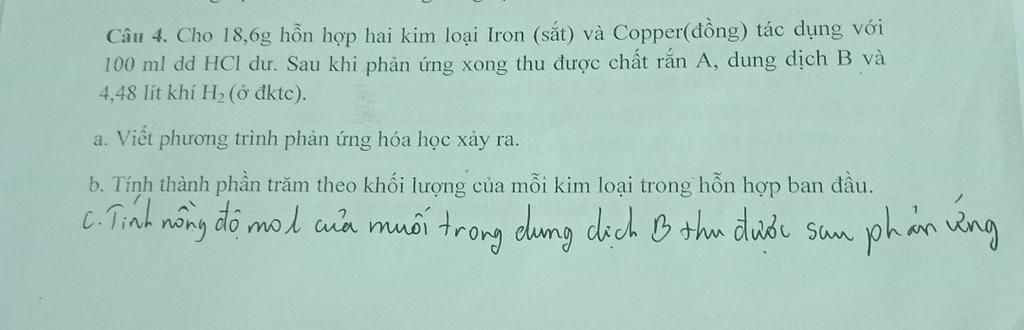 Câu 4. Cho 18,6g hỗn hợp hai kim loại Iron (sắt) và Copper(đồng) tác dụng với
100 ml dd HCl dư. Sau khi phản ứng xong thu được chất rắn A, dung dịch B và
4,48 lít khí H₂ (ở đktc).
a. Viết phương trình phản ứng hóa học xảy ra.
b. Tính thành phần trăm theo khối lượng của mỗi kim loại trong hỗn hợp ban đầu.
C. Tính nồng độ mol của muối trong dung dịch B thu được sau phản ứng